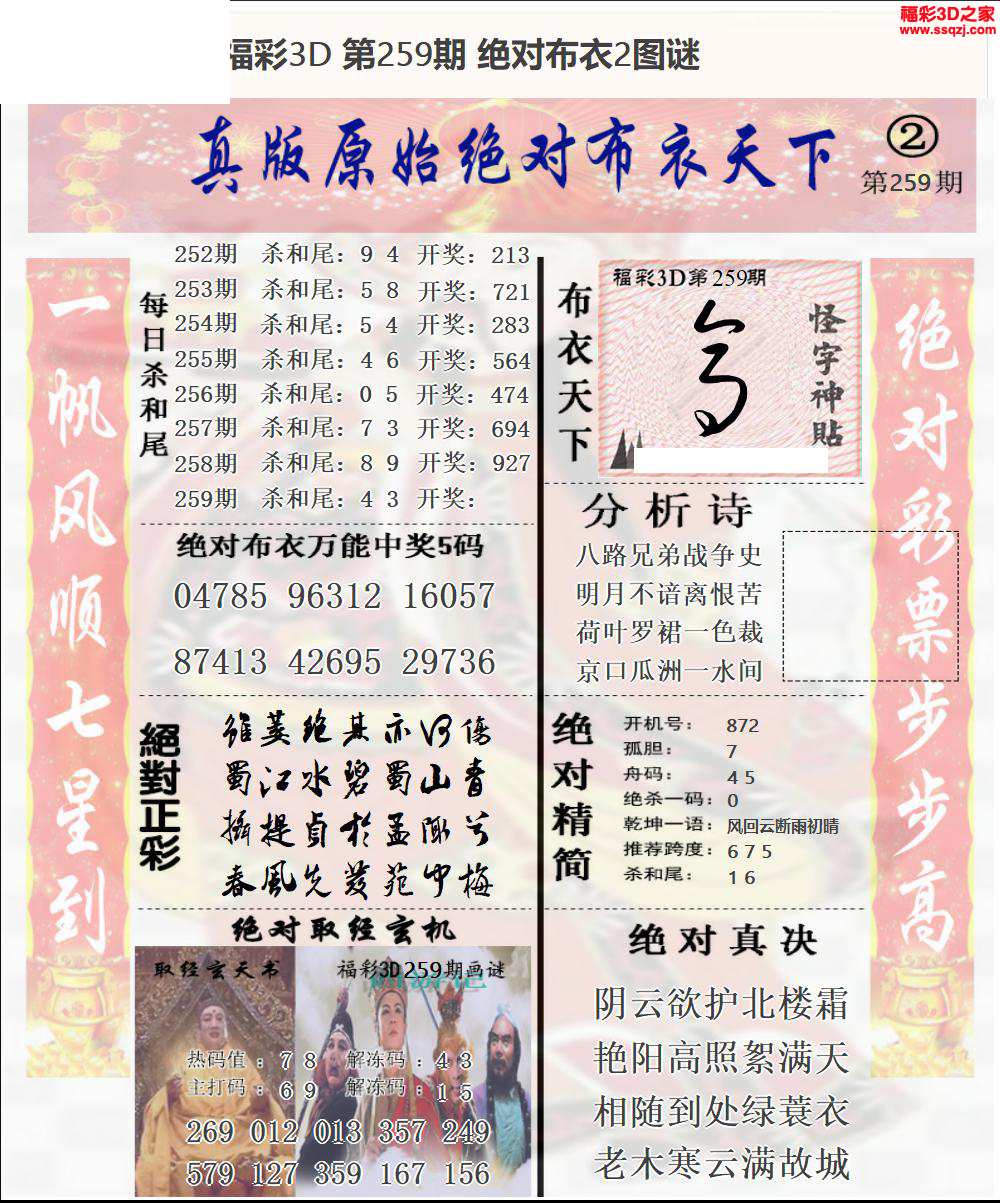 福彩3D之家
www.ssqzj.com
福彩3D 第259期 绝对布衣2图谜
真版原始绝对布衣天下
②
第259期
一帆风顺七星到
每日杀和尾
252期 杀和尾: 9 4 开奖: 213
253期 杀和尾: 5 8 开奖: 721
254期 杀和尾: 5 4 开奖: 283
255期 杀和尾: 4 6 开奖: 564
256期 杀和尾: 0 5 开奖: 474
257期 杀和尾: 7 3 开奖: 694
258期 杀和尾: 8 9 开奖: 927
259期 杀和尾: 4 3 开奖:
绝对布衣万能中奖5码
04785 96312 16057
87413 42695 29736
絕對正彩
雖萎绝其亦何傷
蜀江水碧蜀山青
攝提貞於孟陬兮
春風先發苑中梅
绝对取经玄机
取经玄天书
福彩3D259期画谜
热码值: 7 8 解冻码: 4 3
主打码: 6 9 解冻码: 1 5
269 012 013 357 249
579 127 359 167 156
布衣天下
福彩3D第259期
怪字神貼
分析诗
八路兄弟战争史
明月不谙离恨苦
荷叶罗裙一色裁
京口瓜洲一水间
绝对精简
开机号: 872
孤胆: 7
舟码: 4 5
绝杀一码: 0
乾坤一语: 风回云断雨初晴
推荐跨度: 6 7 5
杀和尾: 1 6
绝对真决
阴云欲护北楼霜
艳阳高照絮满天
相随到处绿蓑衣
老木寒云满故城
绝对彩票步步高